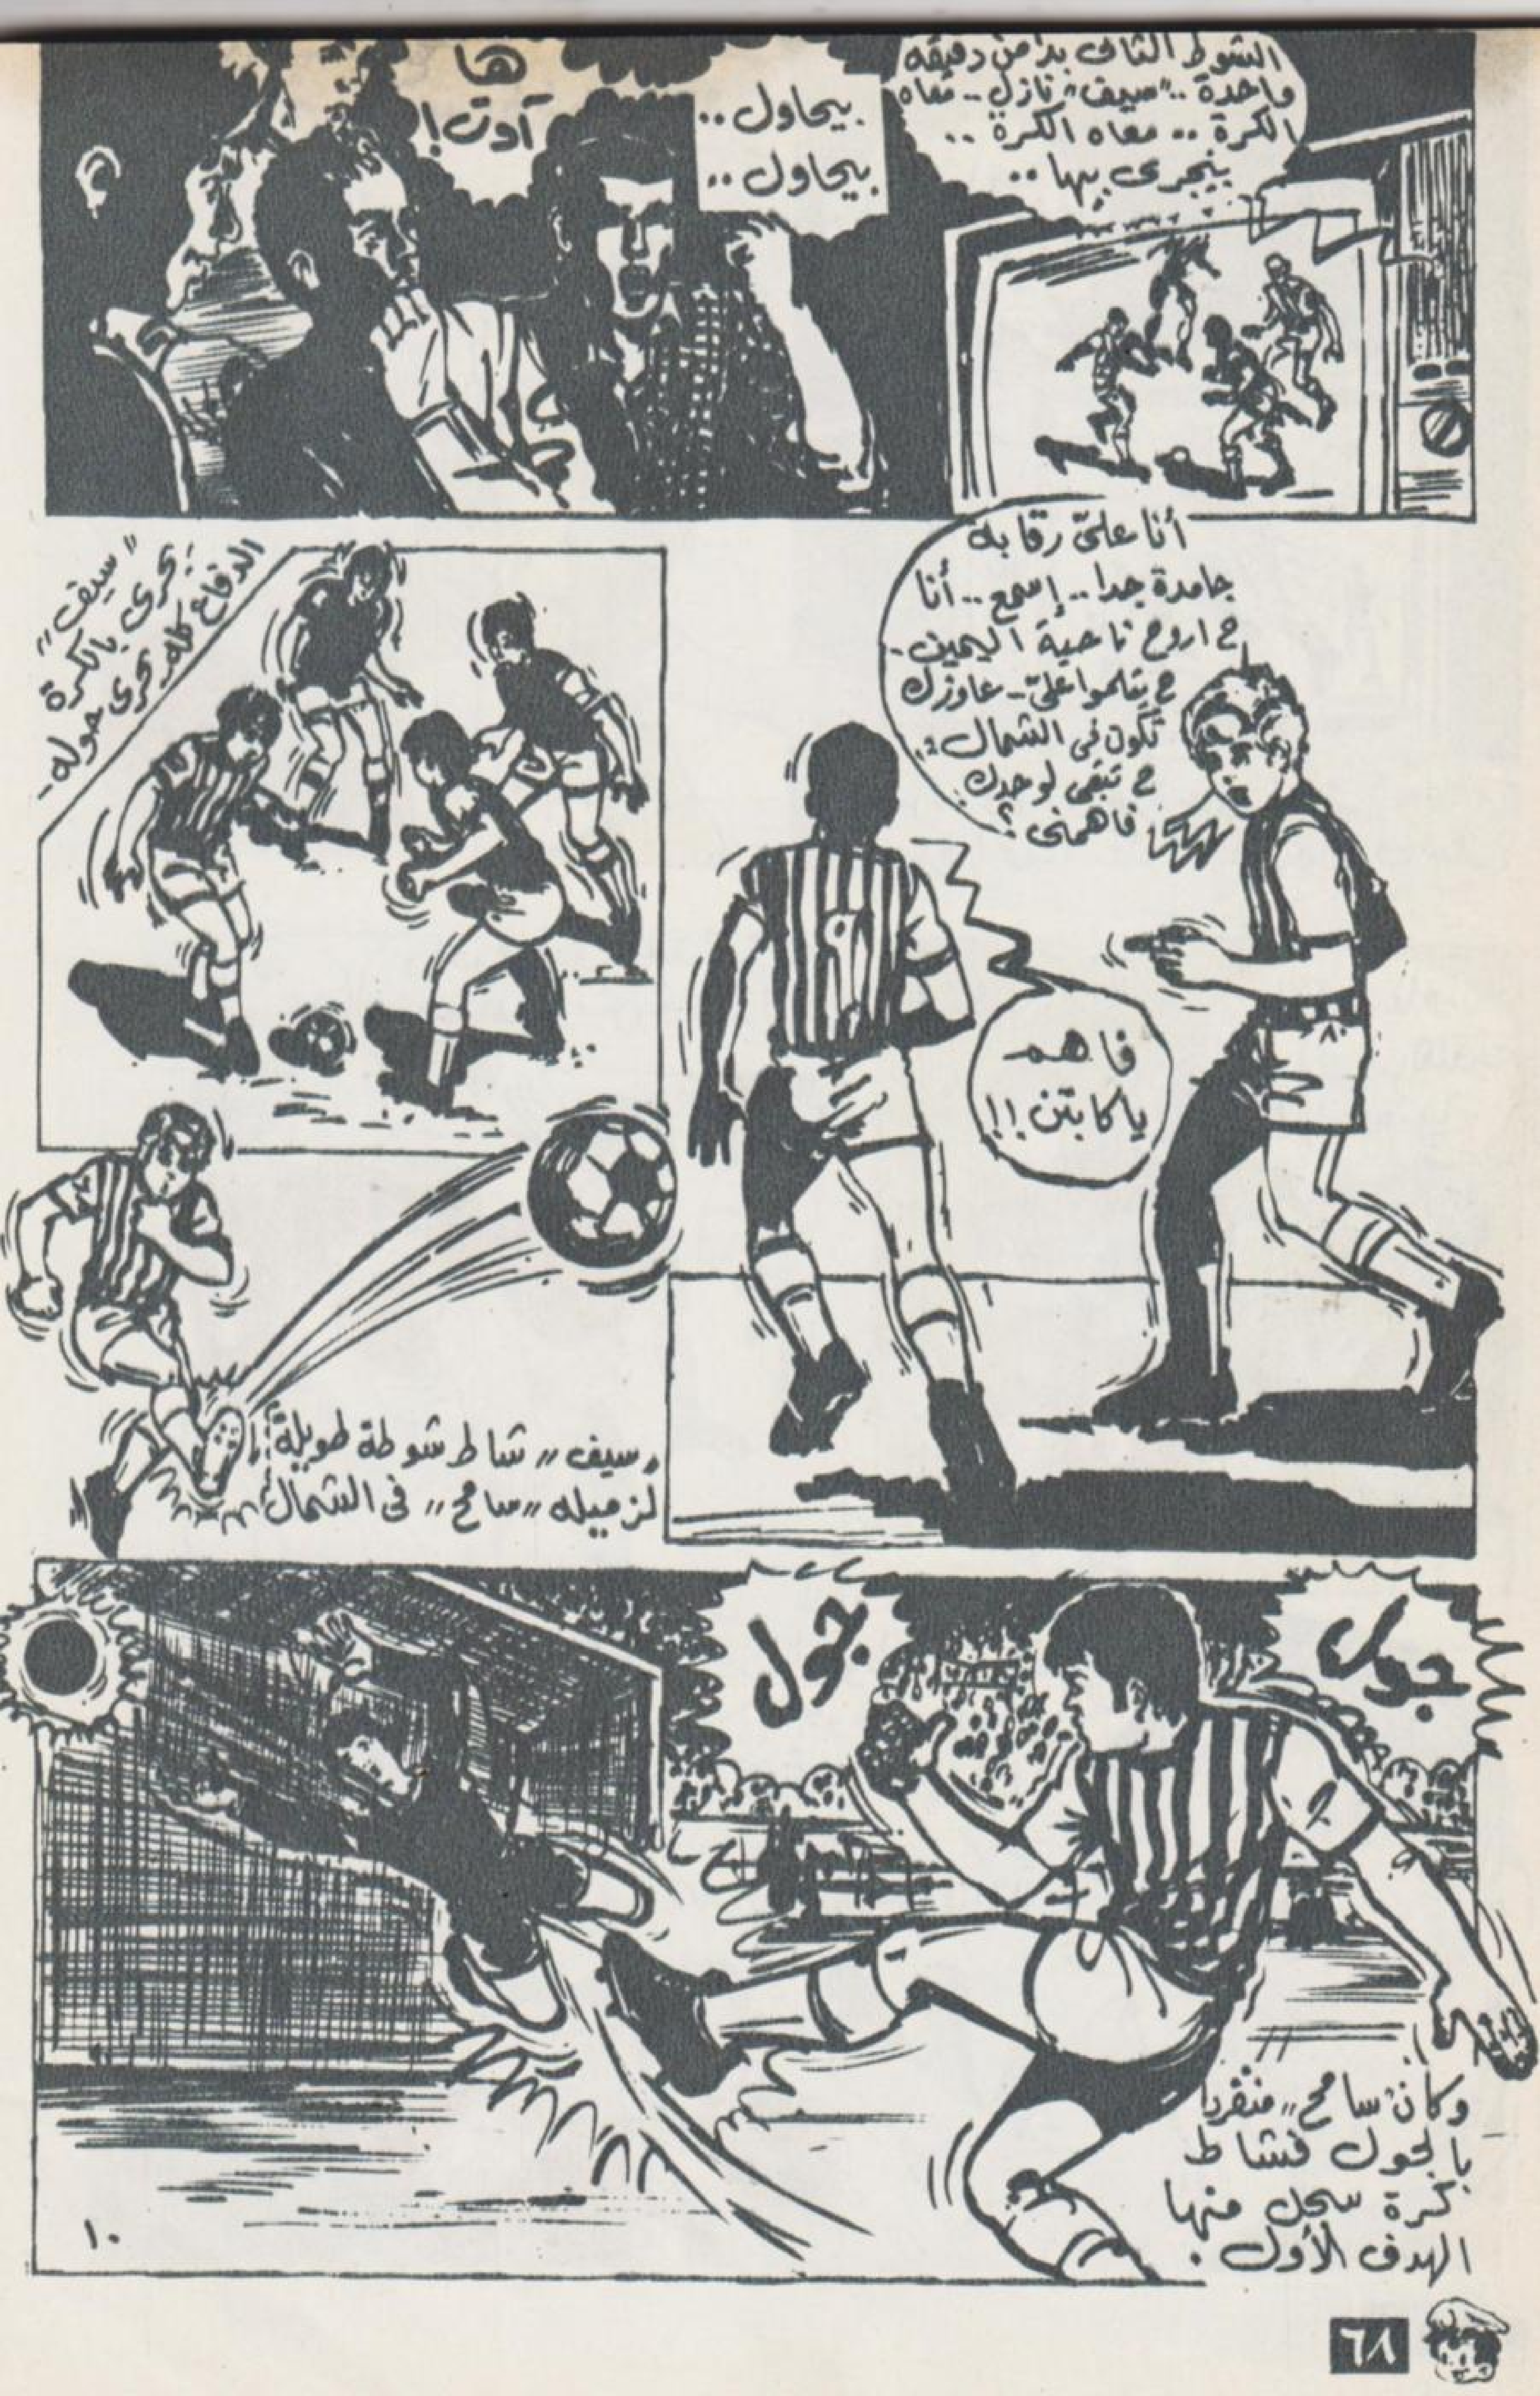 الشوط الثانى بدأ من دقيقه
واحدة .. "سيف" نازل .. معاه
الكرة .. معاه الكرة ..
بيجرى بيها ..
بيحاول ..
بيحاول ..
ها
آوت !
أنا علىّ رقابة
جامدة جدا .. إسمع .. أنا
ح اروح ناحية اليمين ـ
ح يتلموا علىّ ـ عاوزك
تكون فى الشمال ..
ح تبقى لوحدك
فاهمنى ؟
فاهم
ياكابتن !!
"سيف"
يجرى بالكرة
الدفاع كله يجرى حوله ـ
"سيف" شاط شوطة طويلة
لزميله "سامح" فى الشمال
جول
جول
وكان "سامح" منفردا
بالجول فشاط
كرة سجل منها
الهدف الأول .
١٠
٦٨